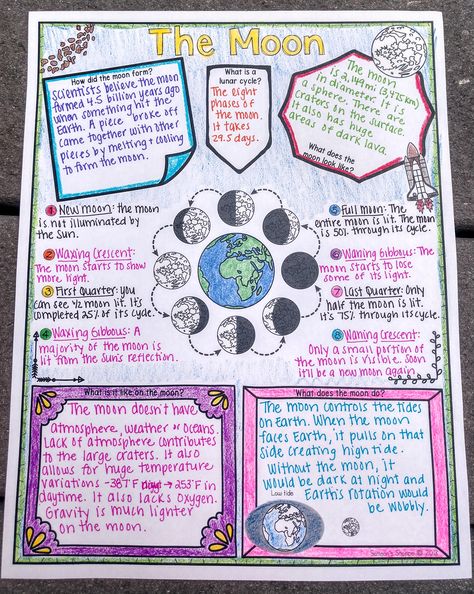 The Moon
How did the moon form?
Scientists believe the moon
formed 4.5 billion years ago
when something hit the
Earth. A piece broke off
came together with other
pieces by melting + cooling
to form the moon.
What is a
lunar cycle?
The eight
phases of
the moon.
It takes
29.5 days.
The moon
is 2,159mi (3,475 km)
in diameter. It is
a sphere. There are
craters in the surface.
It also has huge
areas of dark lava.
What does the
moon look like?
1 New moon: the moon
is not illuminated by
the Sun.
2 Waxing Crescent:
The moon starts to show
more light.
3 First Quarter: you
can see 1/2 moon lit. It's
completed 25% of its cycle.
4 Waxing Gibbous: A
majority of the moon is
lit from the sun's reflection.
5 Full moon: The
entire moon is lit. The moon
is 50% through its cycle.
6 Waning Gibbous: The
moon starts to lose
some of its light.
7 Last Quarter: Only
half the moon is lit.
It's 75% through its cycle.
8 Waning Crescent:
Only a small portion of
the moon is visible. Soon
it'll be a new moon again.
What is it like on the moon?
The moon doesn't have
atmosphere, weather or oceans.
Lack of atmosphere contributes
to the large craters. It also
allows for huge temperature
variations -387°F → 253°F in
daytime. It also lacks oxygen.
Gravity is much lighter
on the moon.
What does the moon do?
The moon controls the tides
on Earth. When the moon
faces Earth, it pulls on that
side creating high tide.
Without the moon, it
would be dark at night and
Earth's rotation would
be wobbly.
Low tide